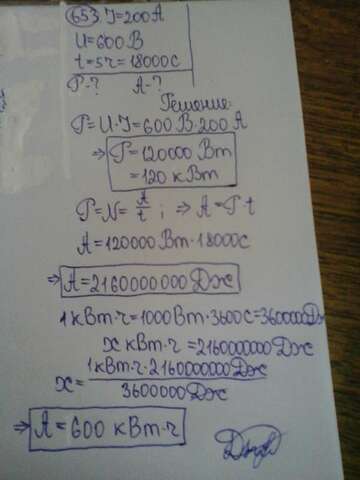 653 I=200A
U=600 В
t=5ч=18000с
P-? A-?
Решение:
P=U·I=600 В·200 А
⇒ P=120000 Вт
=120 кВт
P=N=A/t; ⇒ A=P·t
A=120000 Вт·18000с
⇒ A=2160000000 Дж
1кВт·ч=1000Вт·3600с=3600000Дж
x кВт·ч =2160000000 Дж
x= 1кВт·ч·2160000000 Дж
3600000 Дж
⇒ A=600 кВт·ч